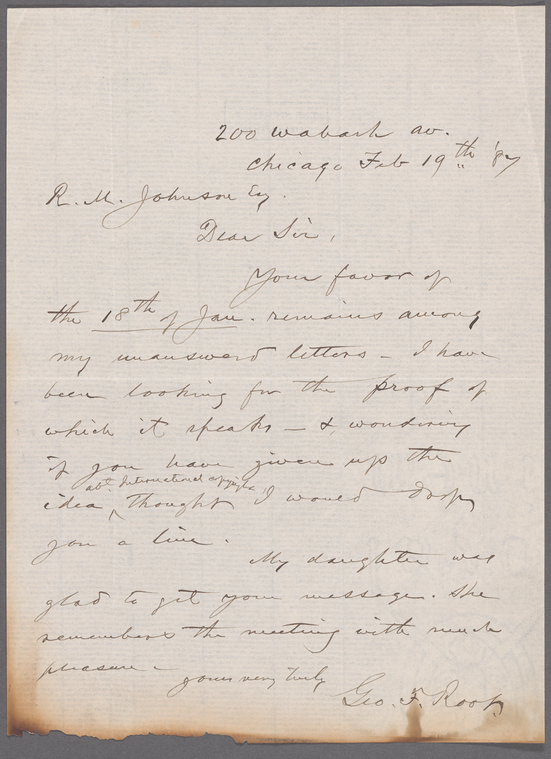 200 Wabash av.
Chicago Feb 19th '87
R. M. Johnson Esq.
Dear Sir,
Your favor of
the 18th of Jan. remains among
my unanswerd letters – I have
been looking for the proof of
which it speaks – & wondering
if you have given up the
abt. International copyright
idea ^ thought I would drop
you a line.
My daughter was
glad to get your message. She
remembers the meeting with much
pleasure –
yours very truly
Geo. F. Root